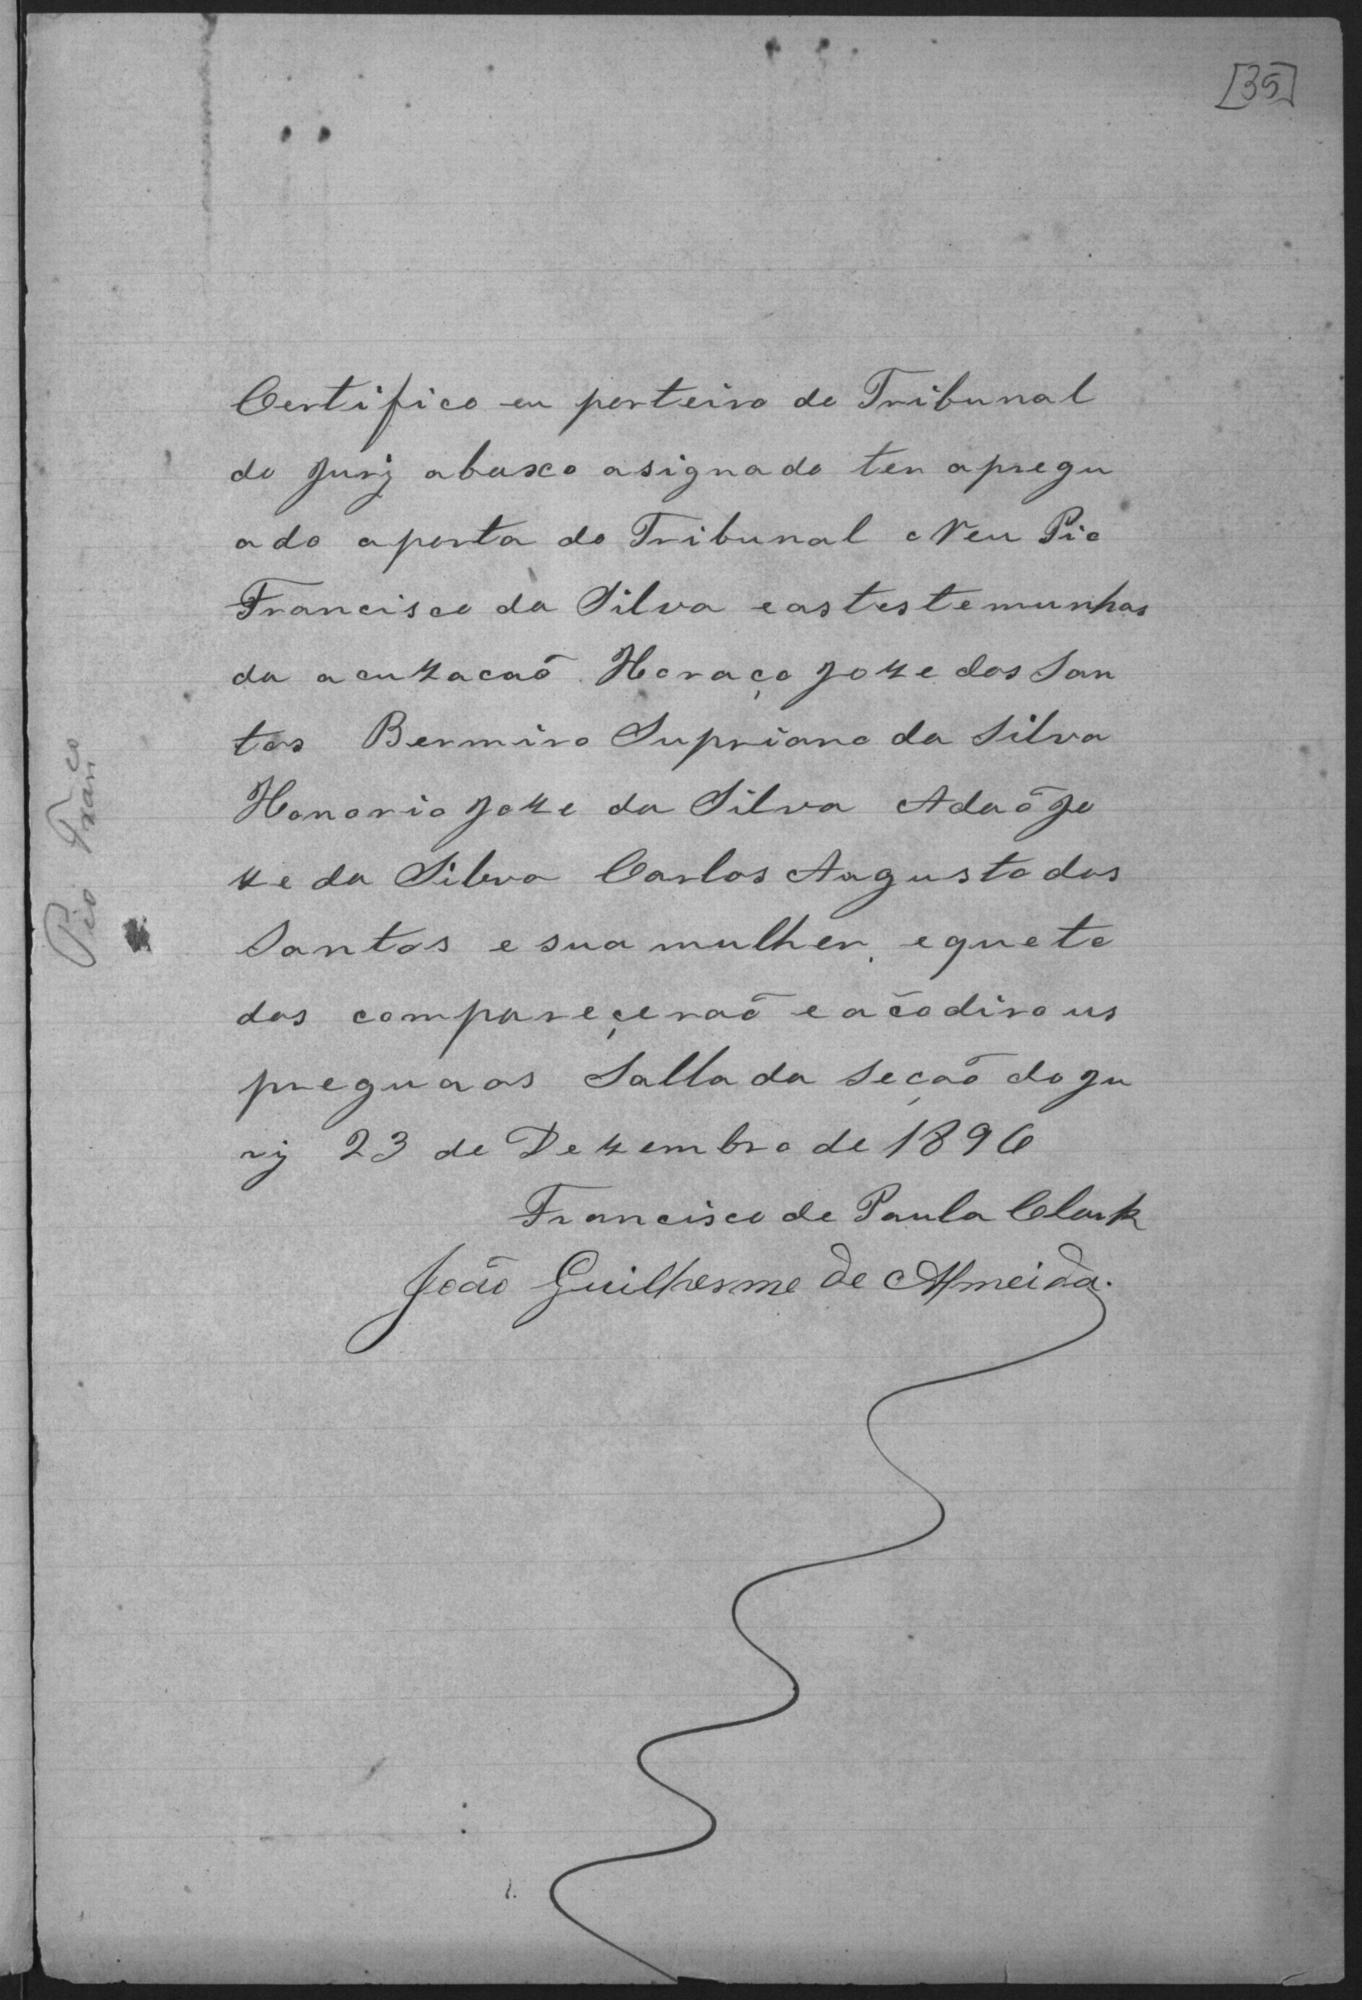 [35]
Certifico eu porteiro do Tribunal
do Jurj abaxo asignado ter apregu
ado aporta do Tribunal o Reu Pio
Francisco da Silva e as testemunhas
da acuzacaõ Horaço Joze dos San
tos Bermiro Supriano da Silva
Honorio Joze da Silva Adaõ Jo
ze da Silva Carlos Augusto dos
Santos e sua mulher, e que to
dos compareçeraõ e açodiro us
preguaos Salla da Seçaõ do Ju
rj 23 de Dezembro de 1896
Francisco de Paula Clark
João Guilherme de Almeida.
Pio Franco